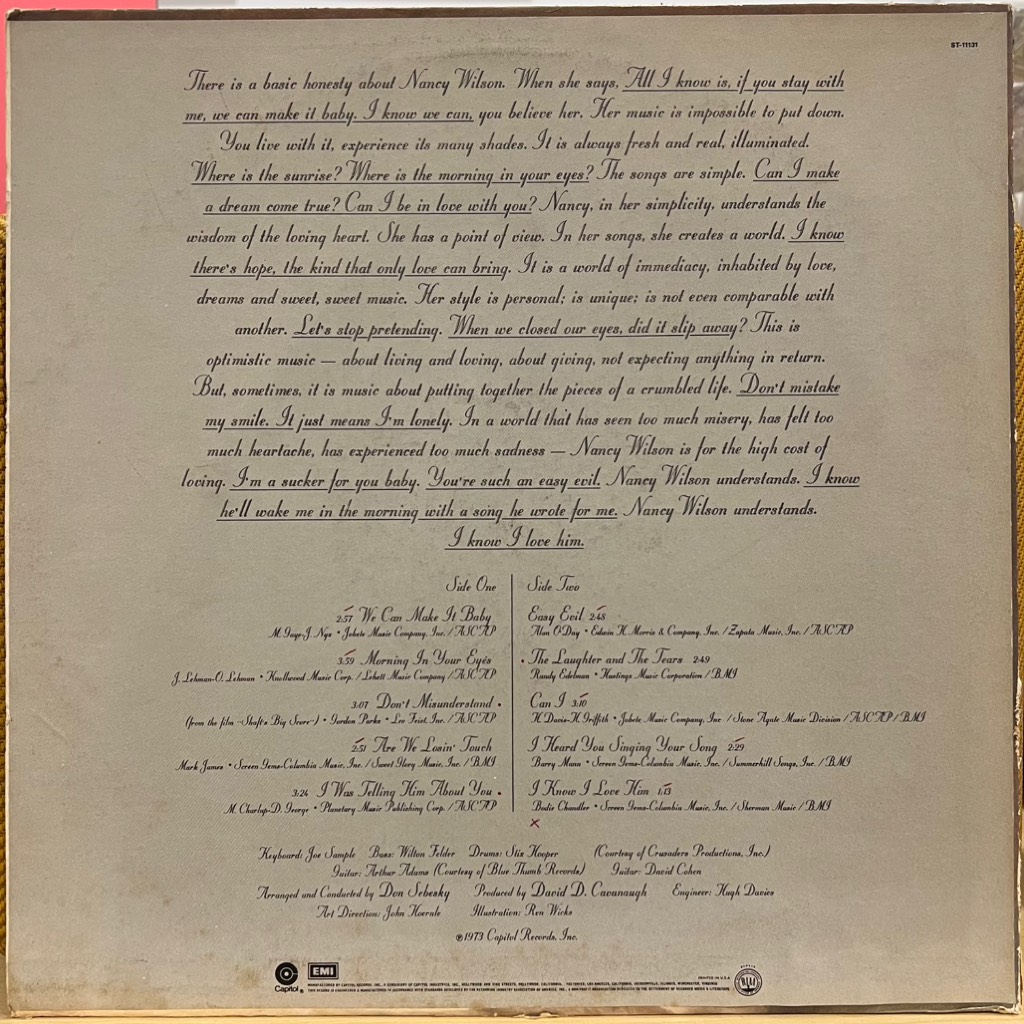 ST-11131
There is a basic honesty about Nancy Wilson. When she says, All I know is, if you stay with
me, we can make it baby. I know we can, you believe her. Her music is impossible to put down.
You live with it, experience its many shades. It is always fresh and real, illuminated.
Where is the sunrise? Where is the morning in your eyes? The songs are simple. Can I make
a dream come true? Can I be in love with you? Nancy, in her simplicity, understands the
wisdom of the loving heart. She has a point of view. In her songs, she creates a world. I know
there's hope, the kind that only love can bring. It is a world of immediacy, inhabited by love,
dreams and sweet, sweet music. Her style is personal; is unique; is not even comparable with
another. Let's stop pretending. When we closed our eyes, did it slip away? This is
optimistic music — about living and loving, about giving, not expecting anything in return.
But, sometimes, it is music about putting together the pieces of a crumbled life. Don't mistake
my smile. It just means I'm lonely. In a world that has seen too much misery, has felt too
much heartache, has experienced too much sadness — Nancy Wilson is for the high cost of
loving. I'm a sucker for you baby. You're such an easy evil. Nancy Wilson understands. I know
he'll wake me in the morning with a song he wrote for me. Nancy Wilson understands.
I know I love him.
Side One
2:57 We Can Make It Baby
M. Gaye-J. Nyx • Jobete Music Company, Inc. / ASCAP
3:59 Morning In Your Eyes
J. Lehman-O. Lehman • Knollwood Music Corp. / Lehett Music Company / ASCAP
3:07 Don't Misunderstand
(from the film "Shaft's Big Score") • Gordon Parks • Leo Feist, Inc. / ASCAP
2:51 Are We Losin' Touch
Mark James • Screen Gems-Columbia Music, Inc. / Sweet Glory Music, Inc. / BMI
3:24 I Was Telling Him About You
M. Charlap-D. George • Planetary Music Publishing Corp. / ASCAP
Side Two
Easy Evil 2:48
Alan O'Day • Edwin H. Morris & Company, Inc. / Zapata Music, Inc. / ASCAP
The Laughter and The Tears 2:49
Randy Edelman • Hastings Music Corporation / BMI
Can I 3:10
H. Davis-H. Griffith • Jobete Music Company, Inc / Stone Agate Music Division / ASCAP / BMI
I Heard You Singing Your Song 2:29
Barry Mann • Screen Gems-Columbia Music, Inc. / Summerhill Songs, Inc. / BMI
I Know I Love Him 1:13
Bodie Chandler • Screen Gems-Columbia Music, Inc. / Sherman Music / BMI
x
Keyboard: Joe Sample Bass: Wilton Felder Drums: Stix Hooper (Courtesy of Crusaders Productions, Inc.)
Guitar: Arthur Adams (Courtesy of Blue Thumb Records) Guitar: David Cohen
Arranged and Conducted by Don Sebesky Produced by David D. Cavanaugh Engineer: Hugh Davies
Art Direction: John Hoernle Illustration: Ren Wicks
℗1973 Capitol Records, Inc.
Capitol®
EMI
PRINTED IN U.S.A.
MANUFACTURED BY CAPITOL RECORDS, INC., A SUBSIDIARY OF CAPITOL INDUSTRIES, INC., HOLLYWOOD AND VINE STREETS, HOLLYWOOD, CALIFORNIA. FACTORIES: LOS ANGELES, CALIFORNIA, JACKSONVILLE, ILLINOIS, WINCHESTER, VIRGINIA